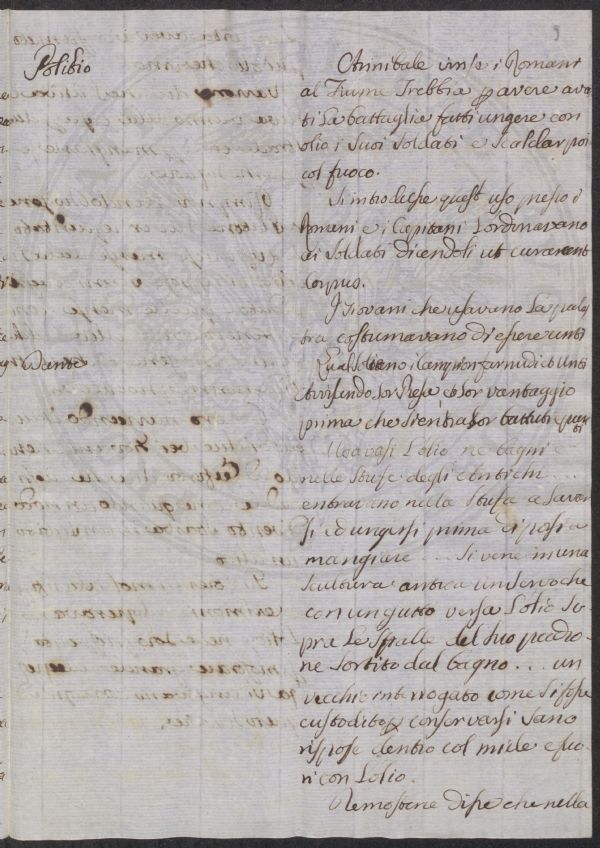 9
Polibio
Annibale vinse i Romani
al Fiume Trebbia p avere avā
ti La battaglia fatti ungere con
olio i Suoi Soldati e Scaldar poi
col fuoco.
S'introdusse quest uso presso i
Romani e i Capitani L'ordinavano
ai Soldati dicendoli ut curarent
Corpus.
I Giovani che usavano La pales
tra costumavano di essere unti
Dante
Qual Soliano i Campion far nudi et Unti
Avisando Lor Presa et Lor vantaggio
prima che Sien tra Lor battuti e punti
Usavasi L'olio ne bagni e
nelle Stufe degli Antichi ...
entravano nella Stufa a Lavar
Si ed ungersi prima di porsi a
mangiare ... Si vene in una
Scultura antica un Servo che
con un gutto versa L'olio So
pra Le Spalle del Suo padro-
ne Sortito dal bagno ... un
vecchio interrogato come Si fosse
custodito p conservarsi Sano
rispose dentro col miele e fuo-
ri con L'olio.
Demostene disse che nella